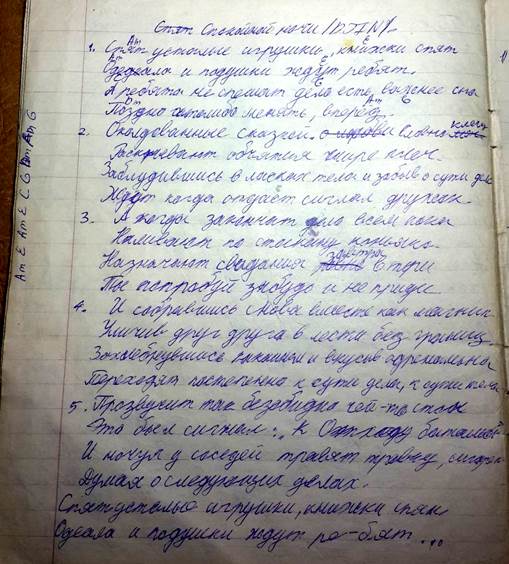 Спят Спокойной ночи
Am E
1. Спят усталые игрушки, книжски спят
Am E
Одеяла и подушки ждут ребят.
А ребята не спешат дела есть, важнее сна
Dm Am
Поздно что-либо менять, вперёд.
2. Околдованные сказкой словно клещ
Раскрывают объятия шире плеч.
Заблудившись в ласках тела и забыв о сути дел
Ждут когда отдаст сигнал другим
3. А когда закончат дело всем пока
Наливают по стакану коньяка
Назначают свидания завтра в три
Ты попробуй забудь и не приди
4. И собравшись снова вместе как магнит
Уличив друг друга в лести без границ
Захлебнувшись и вкусив адреналина
Переходят постепенно к сути дела, к сути
5. Прозвучит так безобидно чей-то стон
Это был сигнал: "К Отходу батальон"
И ночуя у соседей травят травку,
Думая о следующих делах.
Спят усталые игрушки, книжски спят
Одеяла и подушки ждут ре-бят...
Am E Am E C G Dm Am G